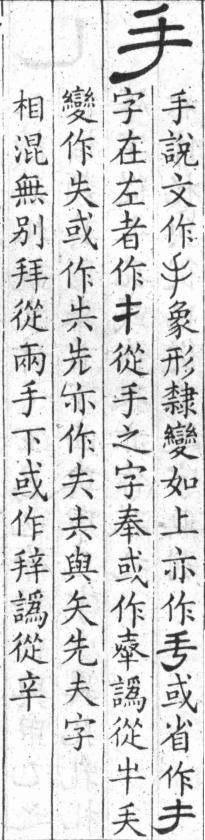 手
手說文作𠂿象形隸變如上亦作𠂒或省作扌
字在左者作扌從手之字奉或作𡙕譌從牛夭
變作失或作共先亦作夫共與矢先夫字
相混無别拜從兩手下或作拜譌從辛